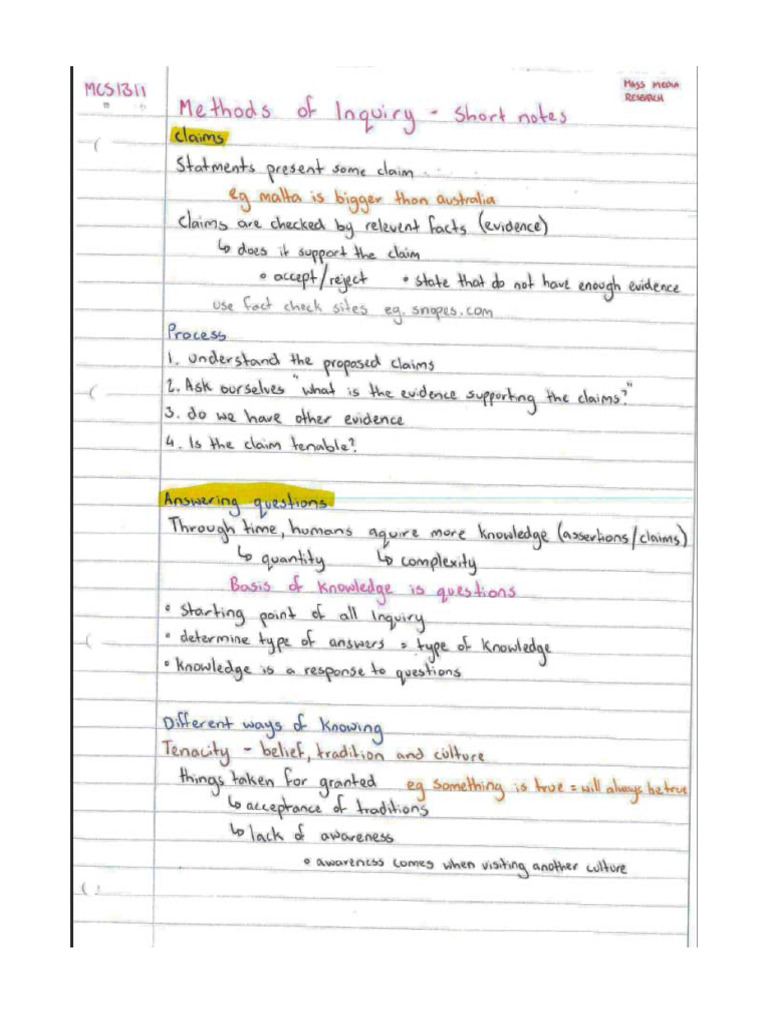 MCS1311
MASS MEDIA
RESEARCH
Methods of Inquiry - Short notes
claims
Statments present some claim
eg malta is bigger than australia
Claims are checked by relevent facts (evidence)
↳ does it support the claim
• accept/reject • state that do not have enough evidence
use fact check sites eg. snopes.com
Process
1. understand the proposed claims
2. Ask ourselves "what is the evidence supporting the claims?"
3. do we have other evidence
4. Is the claim tenable?
Answering questions
Through time, humans aquire more knowledge (assertions/claims)
↳ quantity ↳ complexity
Basis of knowledge is questions
• starting point of all Inquiry
• determine type of answers = type of knowledge
• knowledge is a response to questions
Different ways of knowing
Tenacity - belief, tradition and culture
things taken for granted eg something is true = will always be true
↳ acceptance of traditions
↳ lack of awareness
• awareness comes when visiting another culture